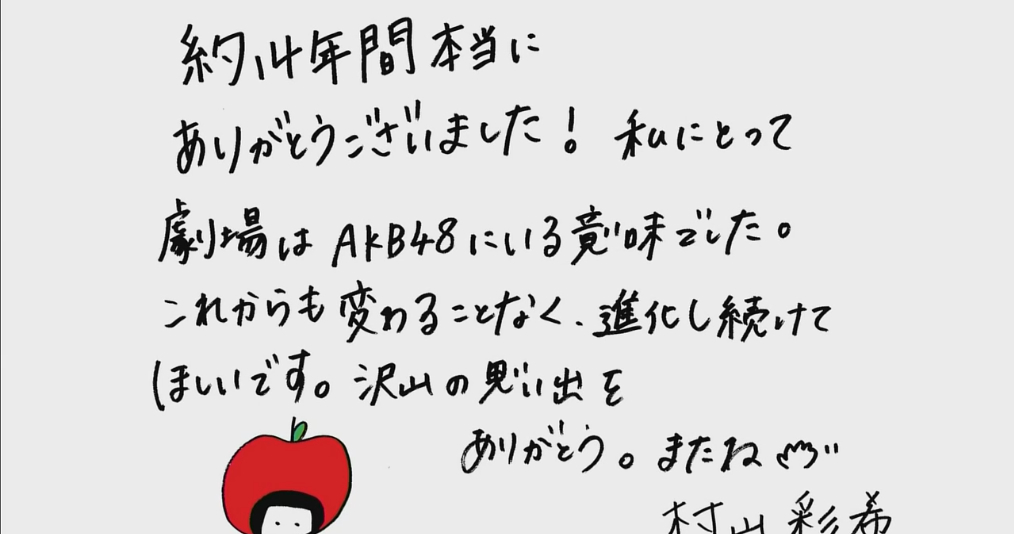 約14年間本当に
ありがとうございました! 私にとって
劇場はAKB48にいる意味でした。
これからも変わることなく、進化し続けて
ほしいです。沢山の思い出を
ありがとう。またね
村山彩希